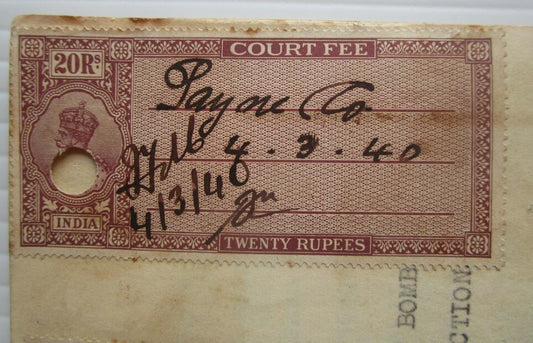 COURT FEE
20Rs
Payne Co
4.3.40
4/3/40
INDIA
TWENTY RUPEES
BOMB
CTION